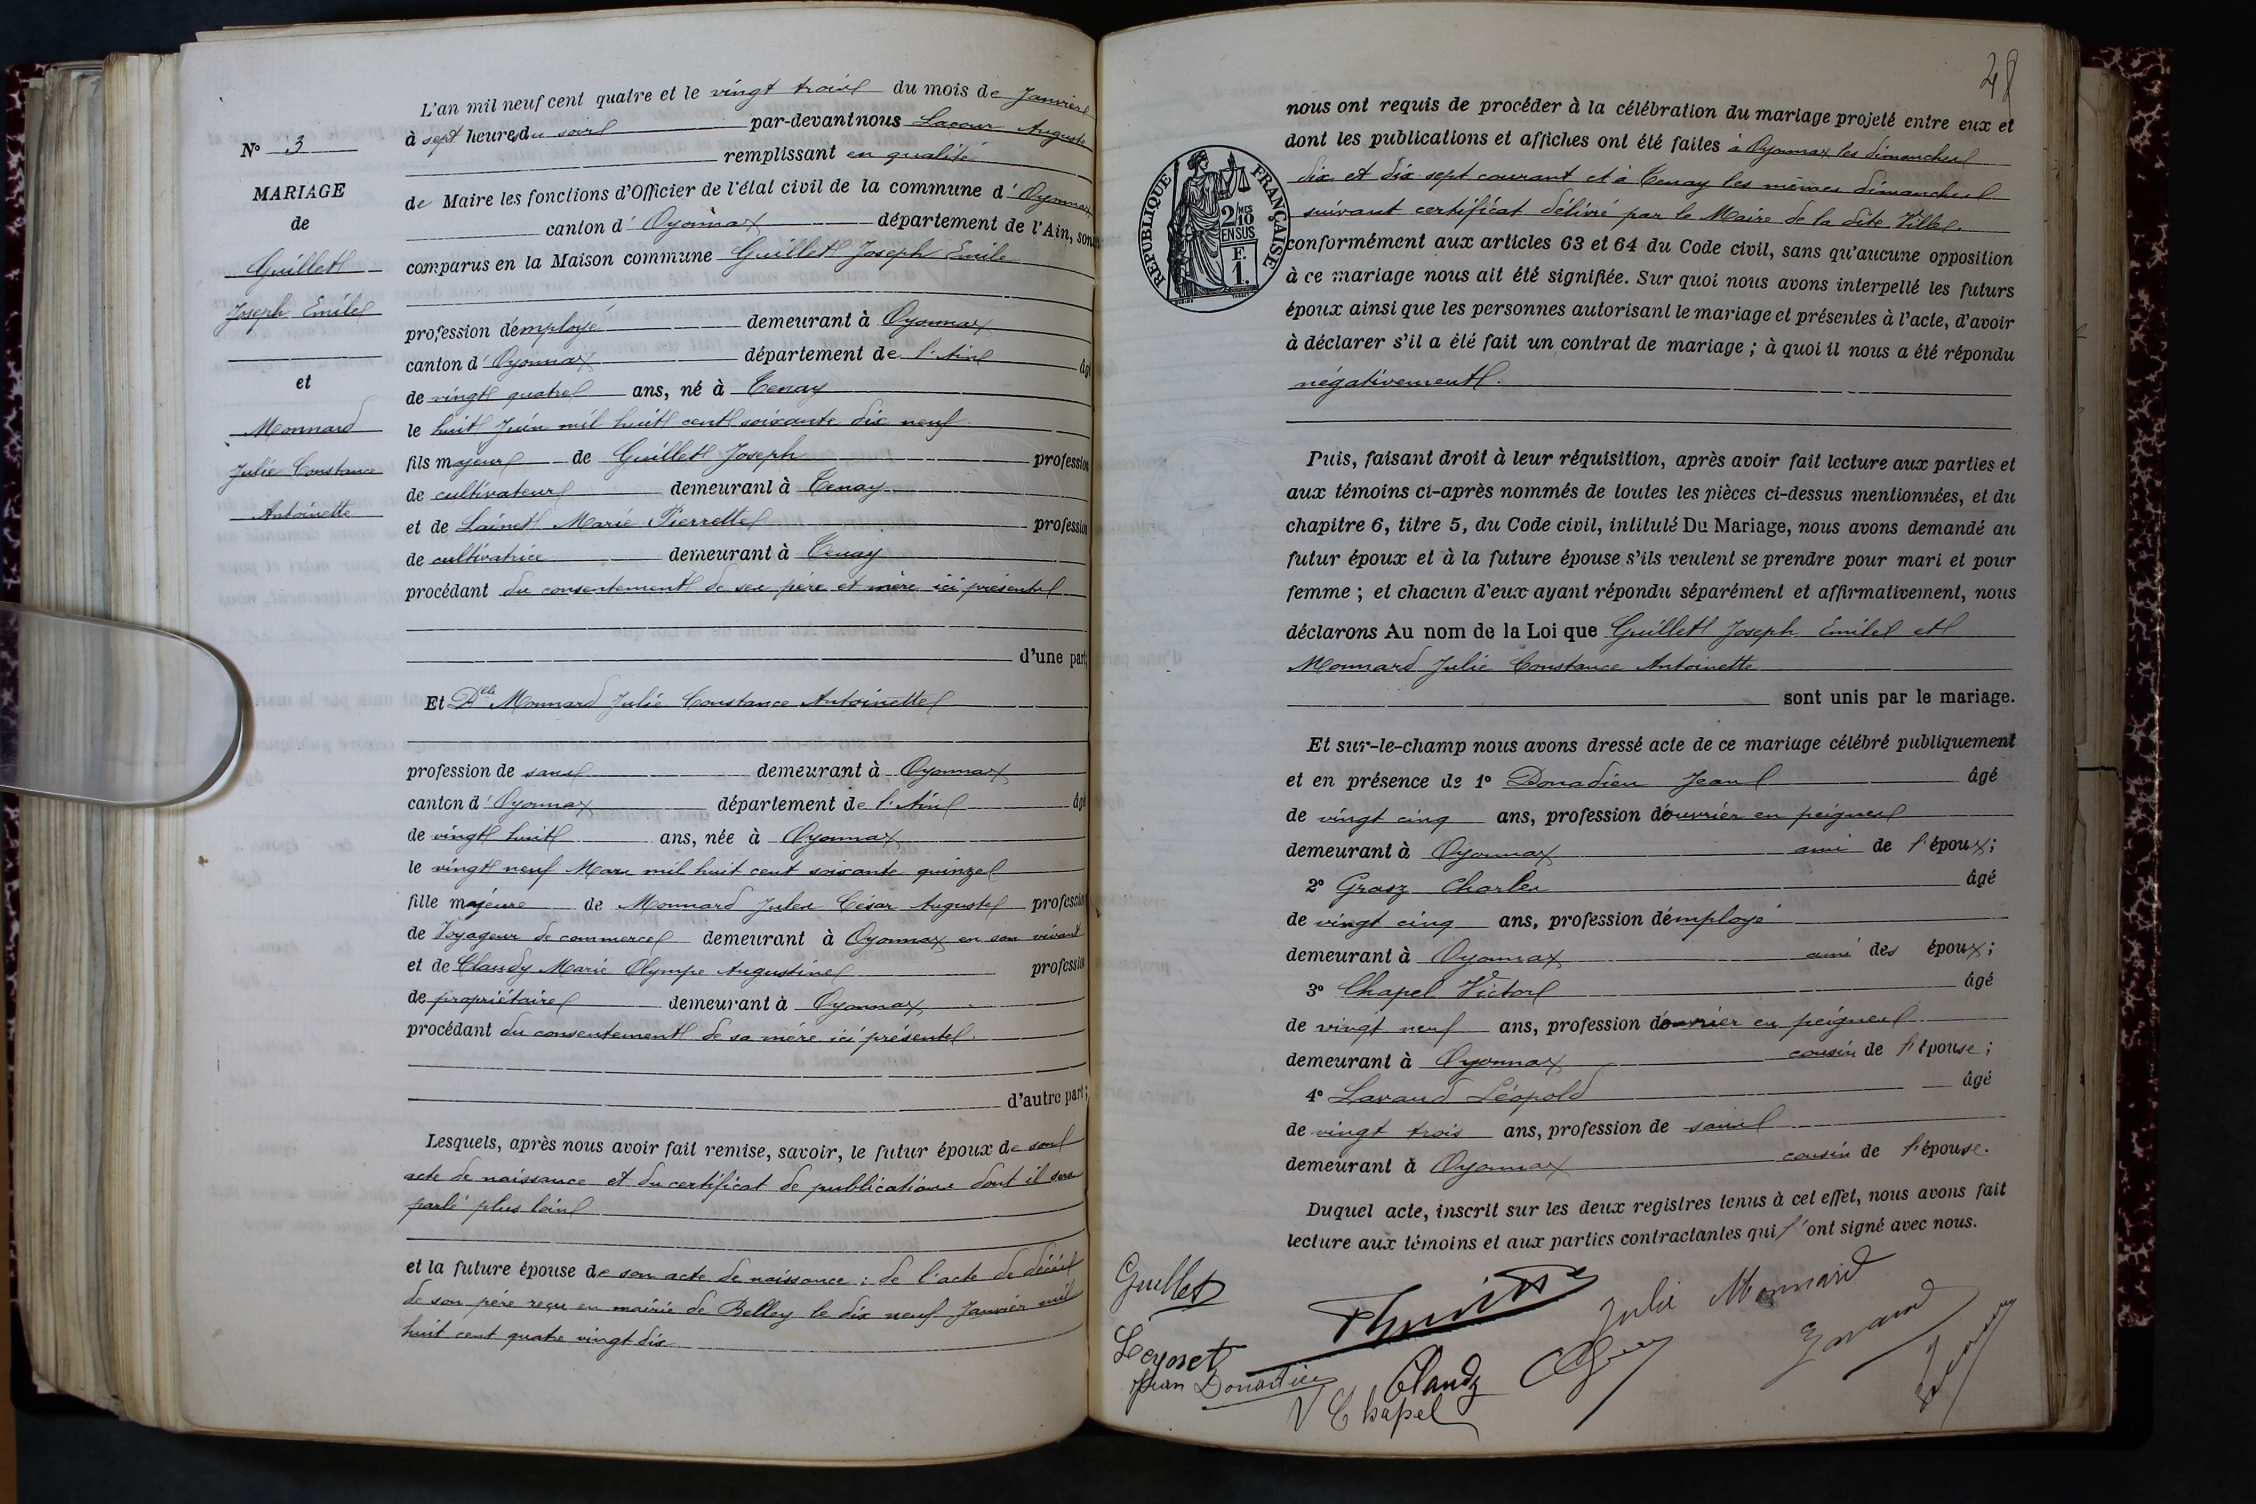 N° 3
MARIAGE
de
Guillet
Joseph Emile
et
Monnard
Julie Constance
Antoinette
L'an mil neuf cent quatre et le vingt trois du mois de Janvier
à sept heures du soir par-devant nous Lacour Auguste
remplissant en qualité
de Maire les fonctions d'Officier de l'état civil de la commune d'Oyonnax
canton d'Oyonnax département de l'Ain, sont
comparus en la Maison commune Guillet Joseph Emile
profession d'employé demeurant à Oyonnax
canton d'Oyonnax département de l'Ain âgé
de vingt quatre ans, né à Tenay
le huit Juin mil huit cent soixante dix neuf
fils majeur de Guillet Joseph profession
de cultivateur demeurant à Tenay
et de Lainet Marie Pierrette profession
de cultivatrice demeurant à Tenay
procédant du consentement de ses père et mère ici présents
d'une part;
Et Dlle Monnard Julie Constance Antoinette
profession de sans demeurant à Oyonnax
canton d'Oyonnax département de l'Ain âgé
de vingt huit ans, née à Oyonnax
le vingt neuf Mars mil huit cent soixante quinze
fille majeure de Monnard Jules César Auguste profession
de Voyageur de commerce demeurant à Oyonnax en son vivant
et de Claudy Marie Olympe Augustine profession
de propriétaire demeurant à Oyonnax
procédant du consentement de sa mère ici présente
d'autre part;
Lesquels, après nous avoir fait remise, savoir, le futur époux de son
acte de naissance et du certificat de publications dont il sera
parlé plus loin
et la future épouse de son acte de naissance : de l'acte de décès
de son père reçu en mairie de Belley le dix neuf Janvier mil
huit cent quatre vingt dix
48
RÉPUBLIQUE FRANÇAISE
2/10MES
EN SUS
F.
1.
nous ont requis de procéder à la célébration du mariage projeté entre eux et
dont les publications et affiches ont été faites à Oyonnax les dimanches
dix et dix sept courant et à Tenay les mêmes dimanches
suivant certificat délivré par le Maire de la dite Ville.
conformément aux articles 63 et 64 du Code civil, sans qu'aucune opposition
à ce mariage nous ait été signifiée. Sur quoi nous avons interpellé les futurs
époux ainsi que les personnes autorisant le mariage et présentes à l'acte, d'avoir
à déclarer s'il a été fait un contrat de mariage ; à quoi il nous a été répondu
négativement.
Puis, faisant droit à leur réquisition, après avoir fait lecture aux parties et
aux témoins ci-après nommés de toutes les pièces ci-dessus mentionnées, et du
chapitre 6, titre 5, du Code civil, intitulé Du Mariage, nous avons demandé au
futur époux et à la future épouse s'ils veulent se prendre pour mari et pour
femme ; et chacun d'eux ayant répondu séparément et affirmativement, nous
déclarons Au nom de la Loi que Guillet Joseph Emile et
Monnard Julie Constance Antoinette
sont unis par le mariage.
Et sur-le-champ nous avons dressé acte de ce mariage célébré publiquement
et en présence de 1° Donadieu Jean âgé
de vingt cinq ans, profession d'ouvrier en peignes
demeurant à Oyonnax ami de l'époux;
2° Grasz Charles âgé
de vingt cinq ans, profession d'employé
demeurant à Oyonnax ami des époux;
3° Chapel Victor âgé
de vingt neuf ans, profession d'ouvrier en peignes
demeurant à Oyonnax cousin de l'épouse;
4° Lavaud Léopold âgé
de vingt trois ans, profession de sans
demeurant à Oyonnax cousin de l'épouse.
Duquel acte, inscrit sur les deux registres tenus à cet effet, nous avons fait
lecture aux témoins et aux parties contractantes qui l'ont signé avec nous.
Guillet
Julie Monnard
Jean Donadieu
Claudy
V Chapel